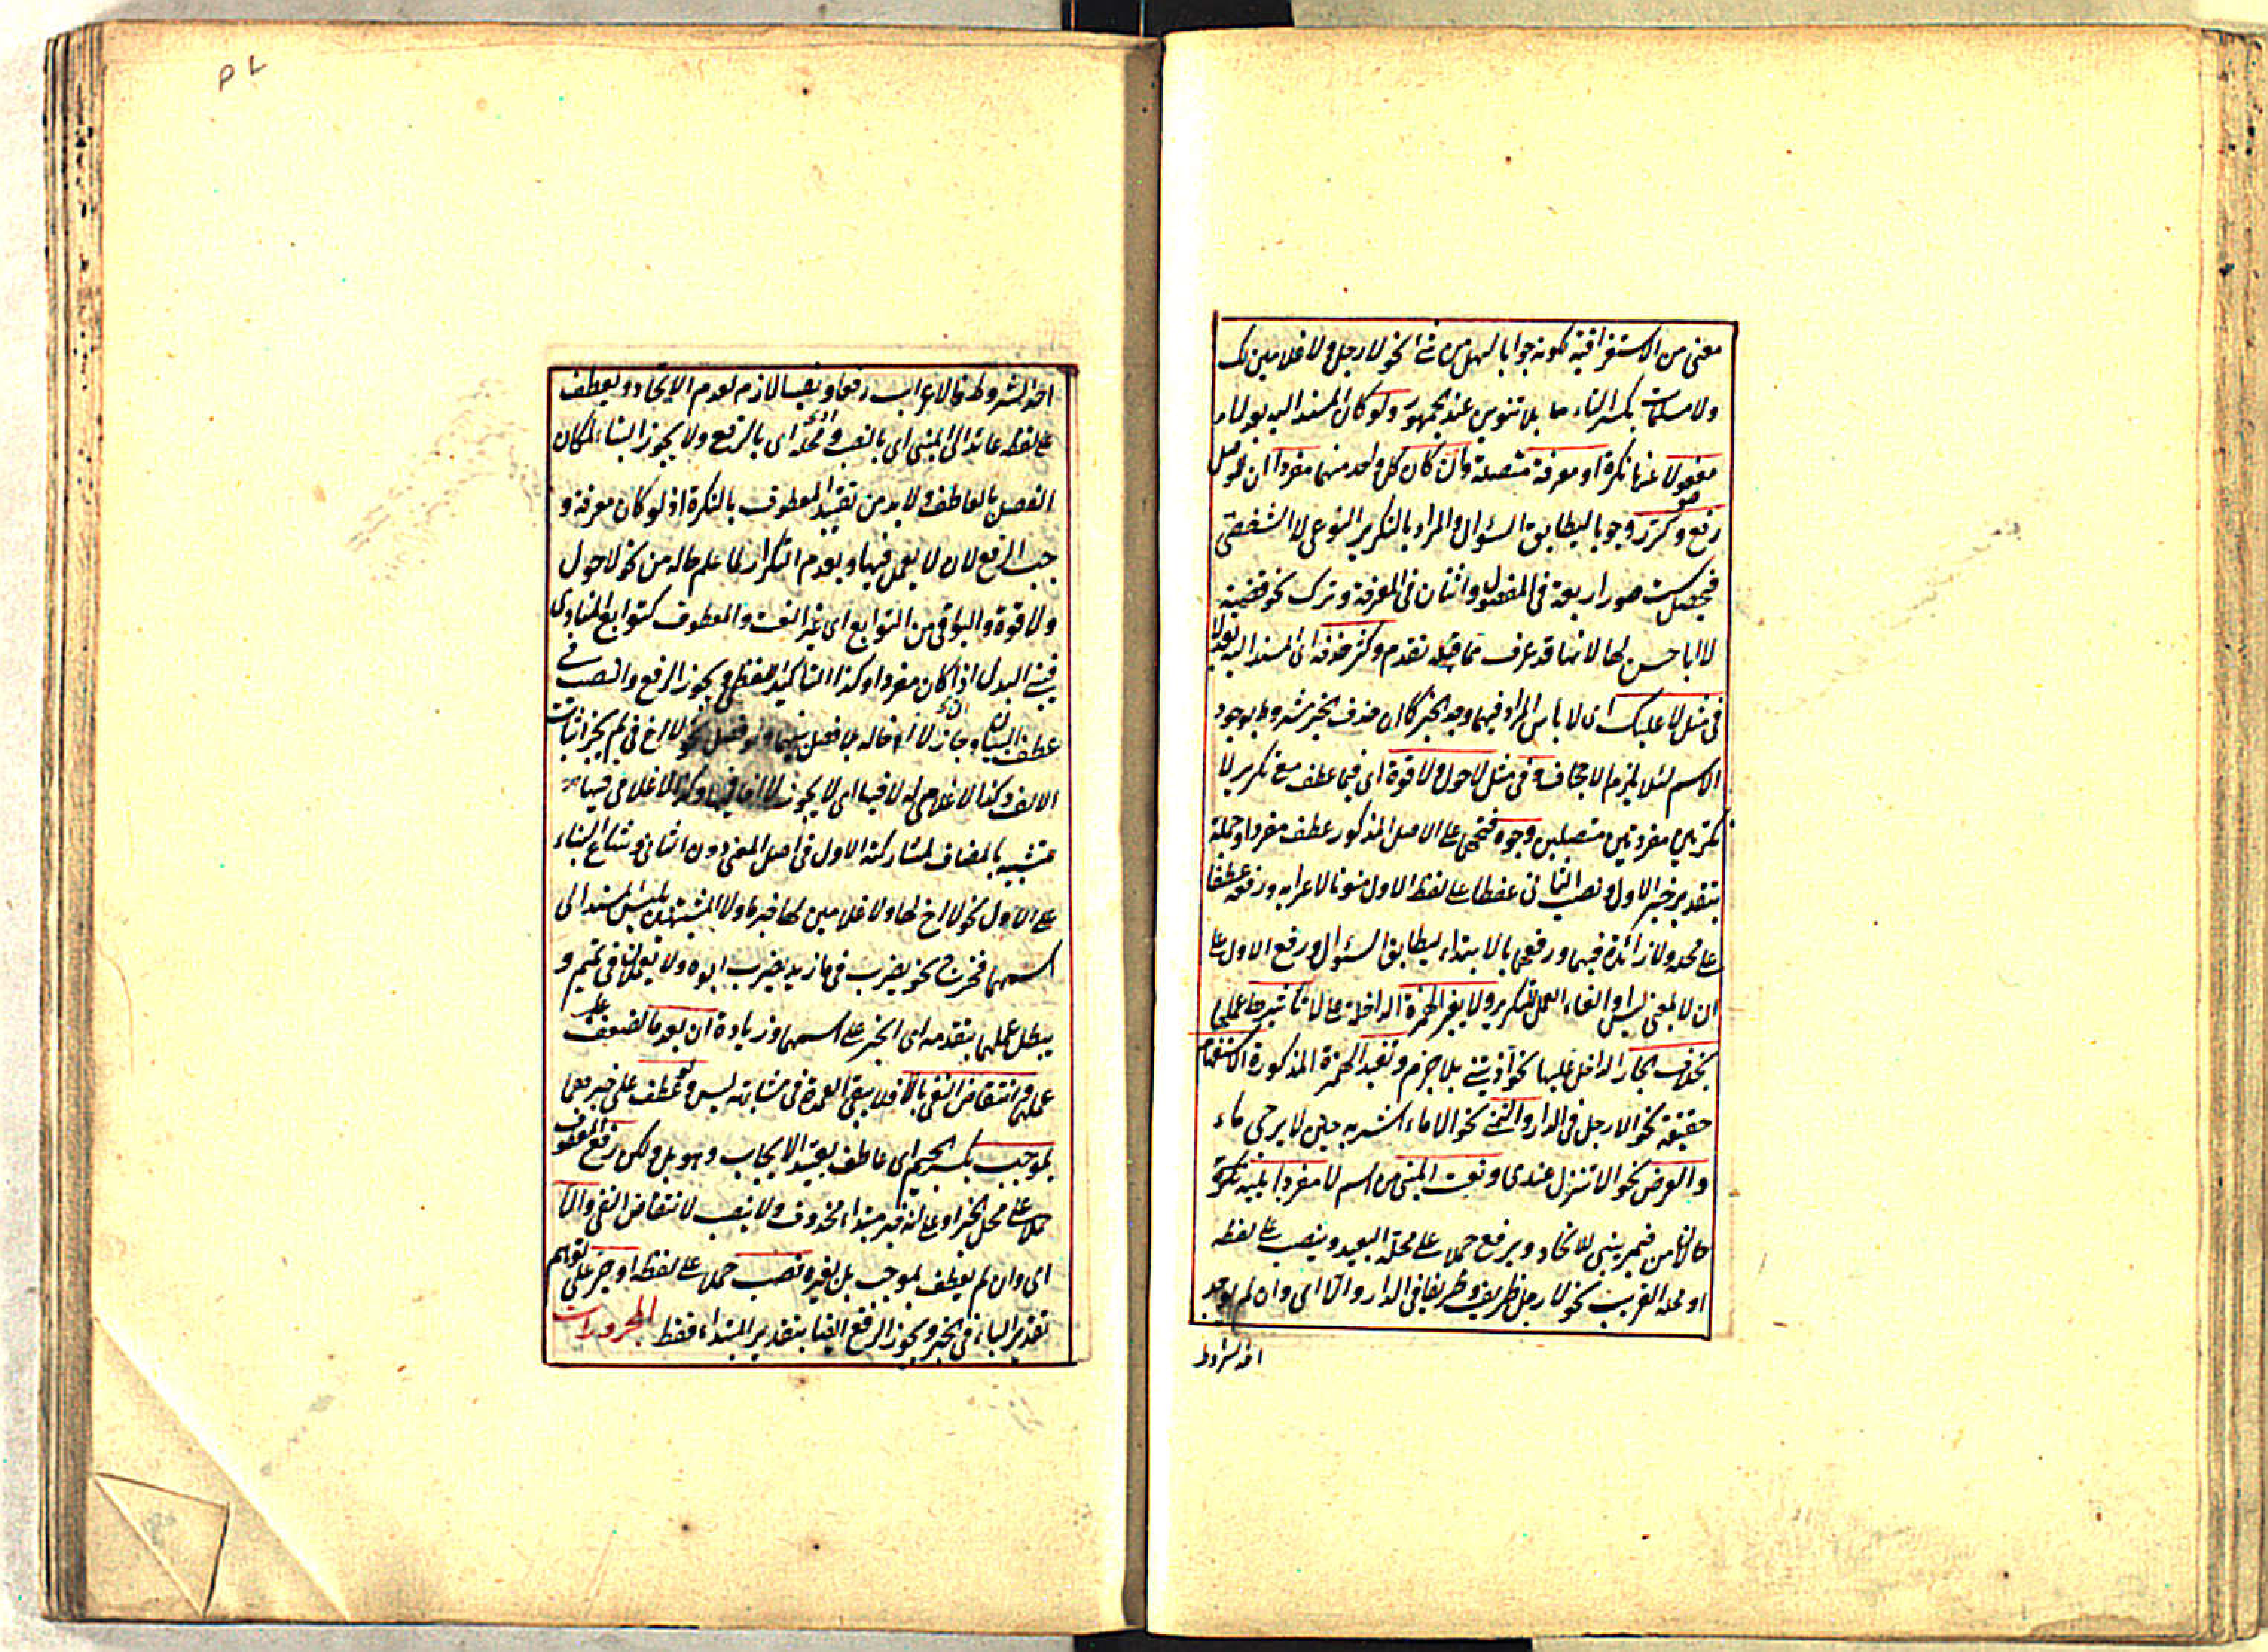 معنى من الاستغراقية لكونه جوابا لهل من نحو لا رجل ولا غلامين لك
ولا مسلمات بكسر التاء بلا تنوين عند الجمهور ولو كان المسند اليه بعد لا
مفصولا عنها نكرة او معرفة متصلة وان كان كل واحد منهما مفردا ان
رفع وكرر وجوبا ليطابق السؤال والمراد بالتكرير النوعى لا الشخصى
فيحصل ست صور اربعة فى المفصول واثنان فى المعرفة وترك نحو قضية
لا ابا حسن لها لانها قد عرف مما قبله تقدم وكثر حذفه اى المسند اليه بعد لا
فى مثل لا عليك اى لا باس المراد فيها وجد الخبر كان حذف الخبر مشروط بوجود
الاسم لئلا يلزم الاجحاف وفى مثل لا حول ولا قوة اى فيما عطف مع تكرير لا
نكرتين مفردتين متصلين وجوه فتحهما على الاصل المذكور عطف مفردا وجملة
بتقدير خبر الاول ونصب الثانى عطفا على لفظ الاول منونا لاعرابه ورفعه عطفا
على محله ولا زائدة فيهما ورفعهما بالابتداء ليطابق السؤال ورفع الاول على
ان لا بمعنى ليس والغاء العمل للتكرير ولا يغير الهمزة الداخلة على لا تاثيرها عملها
بخلاف الجار الداخل عليها نحو آذيتنى بلا جرم وتفيد الهمزة المذكورة الاستفهام
حقيقة نحو الا رجل فى الدار والتمنى نحو الا ماء اشربه حين لا يرجى ماء
والعرض نحو الا تنزل عندى ونعت المبنى من اسم لا مفردا يليه نكرة
حالا من ضمير يبنى للاتحاد ويرفع حملا على محله البعيد وينصب على لفظه
او محله القريب نحو لا رجل ظريف وظريفا فى الدار والا اى وان لم يوجد
احد الشروط
احد الشروط فالاعراب رفعا ونصبا لازم لعدم الاتحاد ويعطف
على لفظه عائد الى المبنى اى بالنصب ومحله اى بالرفع ولا يجوز البناء لمكان
الفصل بالعاطف ولا بد من تقييد المعطوف بالنكرة اذ لو كان معرفة و
جب الرفع لان لا لا يعمل فيها وبعدم التكرار لما علم حاله من نحو لا حول
ولا قوة والبواقى من التوابع اى غير النعت والمعطوف كتوابع المنادى
فيبنى البدل اذا كان مفردا وكذا التاكيد اللفظى ويجوز الرفع والنصب فى
عطف البيان وجاز لا ابا له بلا فصل بينهما ولو فصل نحو لا اخ فى لم يجز اثبات
الالف وكذا لا غلامى له لا فيها اى لا يجوز لا ابا فيها وكذا لا غلامى فيها
متشبيه بالمضاف لمشاركته الاول فى اصل المعنى دون الثانى وشاع البناء
على الاول نحو لا اخ لها ولا غلامين لها خبر ما ولا المشبهتين بليس المسند الى
اسمهما فخرج نحو يضرب فى ما زيد يضرب ابوه ولا تعملان فى تميم و
يبطل عملهما بتقدمه اى الخبر على اسمهما وزيادة ان بعد ما لضعف
عملها وانتقاض النفى بالا فلا يبقى العمدة فى مشابهته ليس ولو عطف على خبرهما
بموجب بكسر الجيم اى عاطف يفيد الايجاب وهو بل ولكن رفع المعطوف
حملا على محل الخبر او على انه خبر مبتداء محذوف ولا ينصب لانتقاض النفى والا
اى وان لم يعطف بموجب بل بغيره نصب حملا على لفظه او جر على توهم
تقدير الباء فى الخبر ويجوز الرفع ايضا بتقدير المبتداء فقط المجرورات